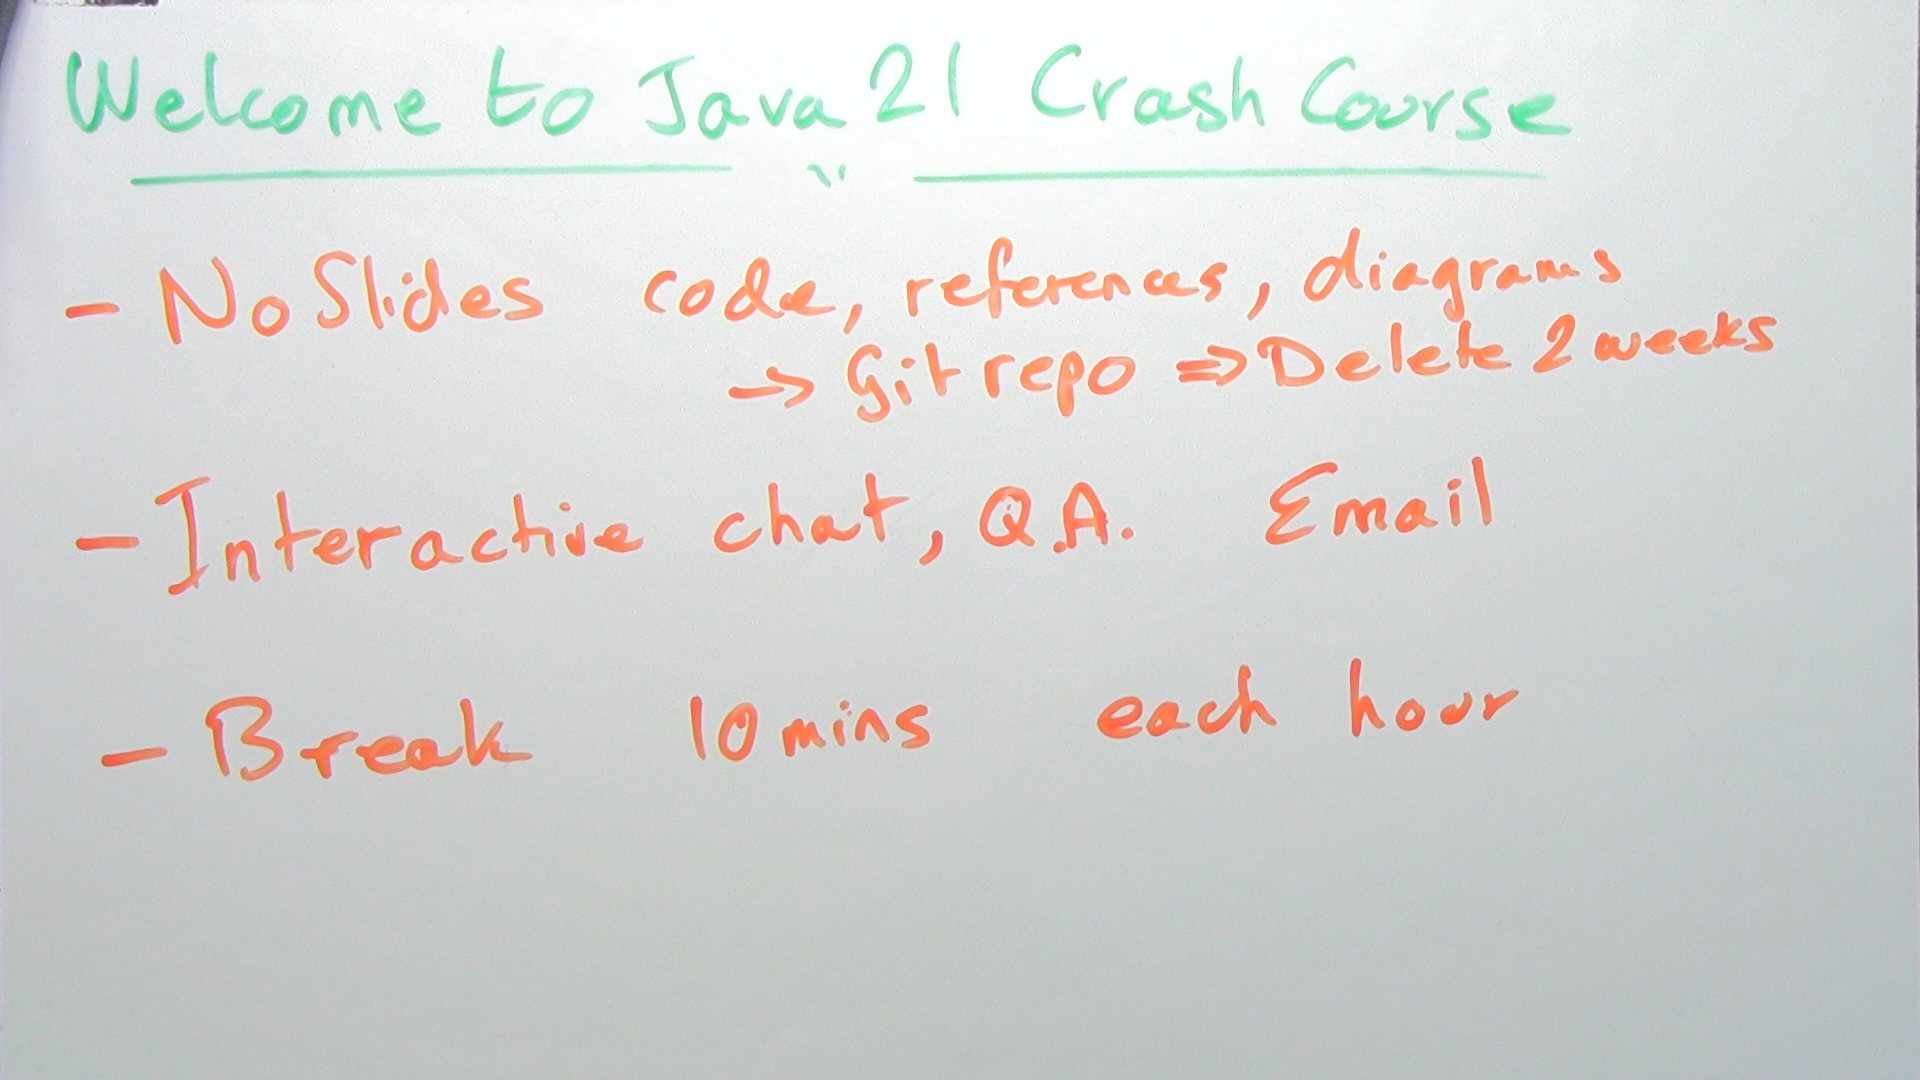 Welcome to Java 21 Crash Course
- No Slides code, references, diagrams
→ Git repo ⇒ Delete 2 weeks
- Interactive chat, Q.A. Email
- Break 10 mins each hour